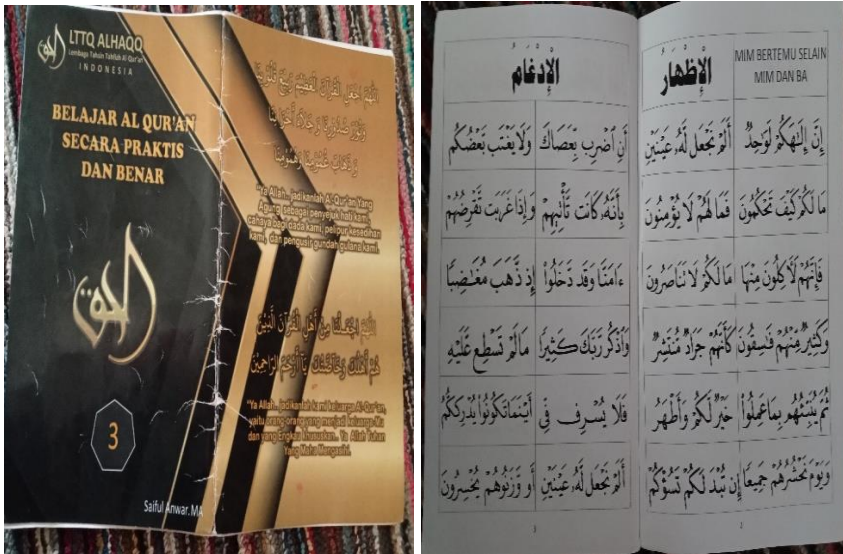 LTTQ ALHAQQ
Lembaga Tahsin Tahfidh Al Qur'an
INDONESIA
BELAJAR AL QUR'AN
SECARA PRAKTIS
DAN BENAR
الحق
3
Saiful Anwar.MA
اللهم اجعل القرآن العظيم ربيع قلوبنا
ونور صدورنا وجلاء أحزاننا
وذهاب غمومنا وهمومنا
"Ya Allah.. jadikanlah Al-Qur'an Yang
Agung sebagai penyejuk hati kami,
cahaya bagi dada kami, pelipur kesedihan
kami, dan pengusir gundah gulana kami.
اللهم اجعلنا من أهل القرآن الذين
هم أهلك وخاصتك يا أرحم الراحمين
"Ya Allah.. jadikanlah kami keluarga Al-Qur'an,
yaitu orang-orang yang menjadi keluarga-Mu
dan yang Engkau khususkan.. Ya Allah Tuhan
Yang Maha Mengasihi.
MIM BERTEMU SELAIN
MIM DAN BA
الْإِظْهَارُ
إِنَّ إِلَٰهَكُمْ لَوَٰحِدٌ أَلَمْ نَجْعَل لَّهُۥ عَيْنَيْنِ
مَا لَكُمْ كَيْفَ تَحْكُمُونَ فَمَا لَهُمْ لَا يُؤْمِنُونَ
فَإِنَّهُمْ لَآكِلُونَ مِنْهَا مَا لَكُمْ لَا تَنَاصَرُونَ
وَكَثِيرٌ مِّنْهُمْ فَٰسِقُونَ كَأَنَّهُمْ جَرَادٌ مُّنتَشِرٌ
ثُمَّ يُنَبِّئُهُم بِمَا عَمِلُوا۟ خَيْرٌ لَّكُمْ وَأَطْهَرُ
وَيَوْمَ نَحْشُرُهُمْ جَمِيعًا إِن تُبْدَ لَكُمْ تَسُؤْكُمْ
2
الْإِدْغَامُ
أَنِ ٱضْرِب بِّعَصَاكَ وَلَا يَغْتَب بَّعْضُكُم
بِأَنَّهُۥ كَانَت تَّأْتِيهِمْ وَإِذَا غَرَبَت تَّقْرِضُهُمْ
ءَامَنَّا وَقَد دَّخَلُوا۟ إِذ ذَّهَبَ مُغَٰضِبًا
وَٱذْكُر رَّبَّكَ كَثِيرًا مَا لَمْ تَسْطِع عَّلَيْهِ
فَلَا يُسْرِف فِّى أَيْنَمَا تَكُونُوا۟ يُدْرِككُّمُ
أَلَمْ نَجْعَل لَّهُۥ عَيْنَيْنِ أَو وَّزَنُوهُمْ يُخْسِرُونَ
3